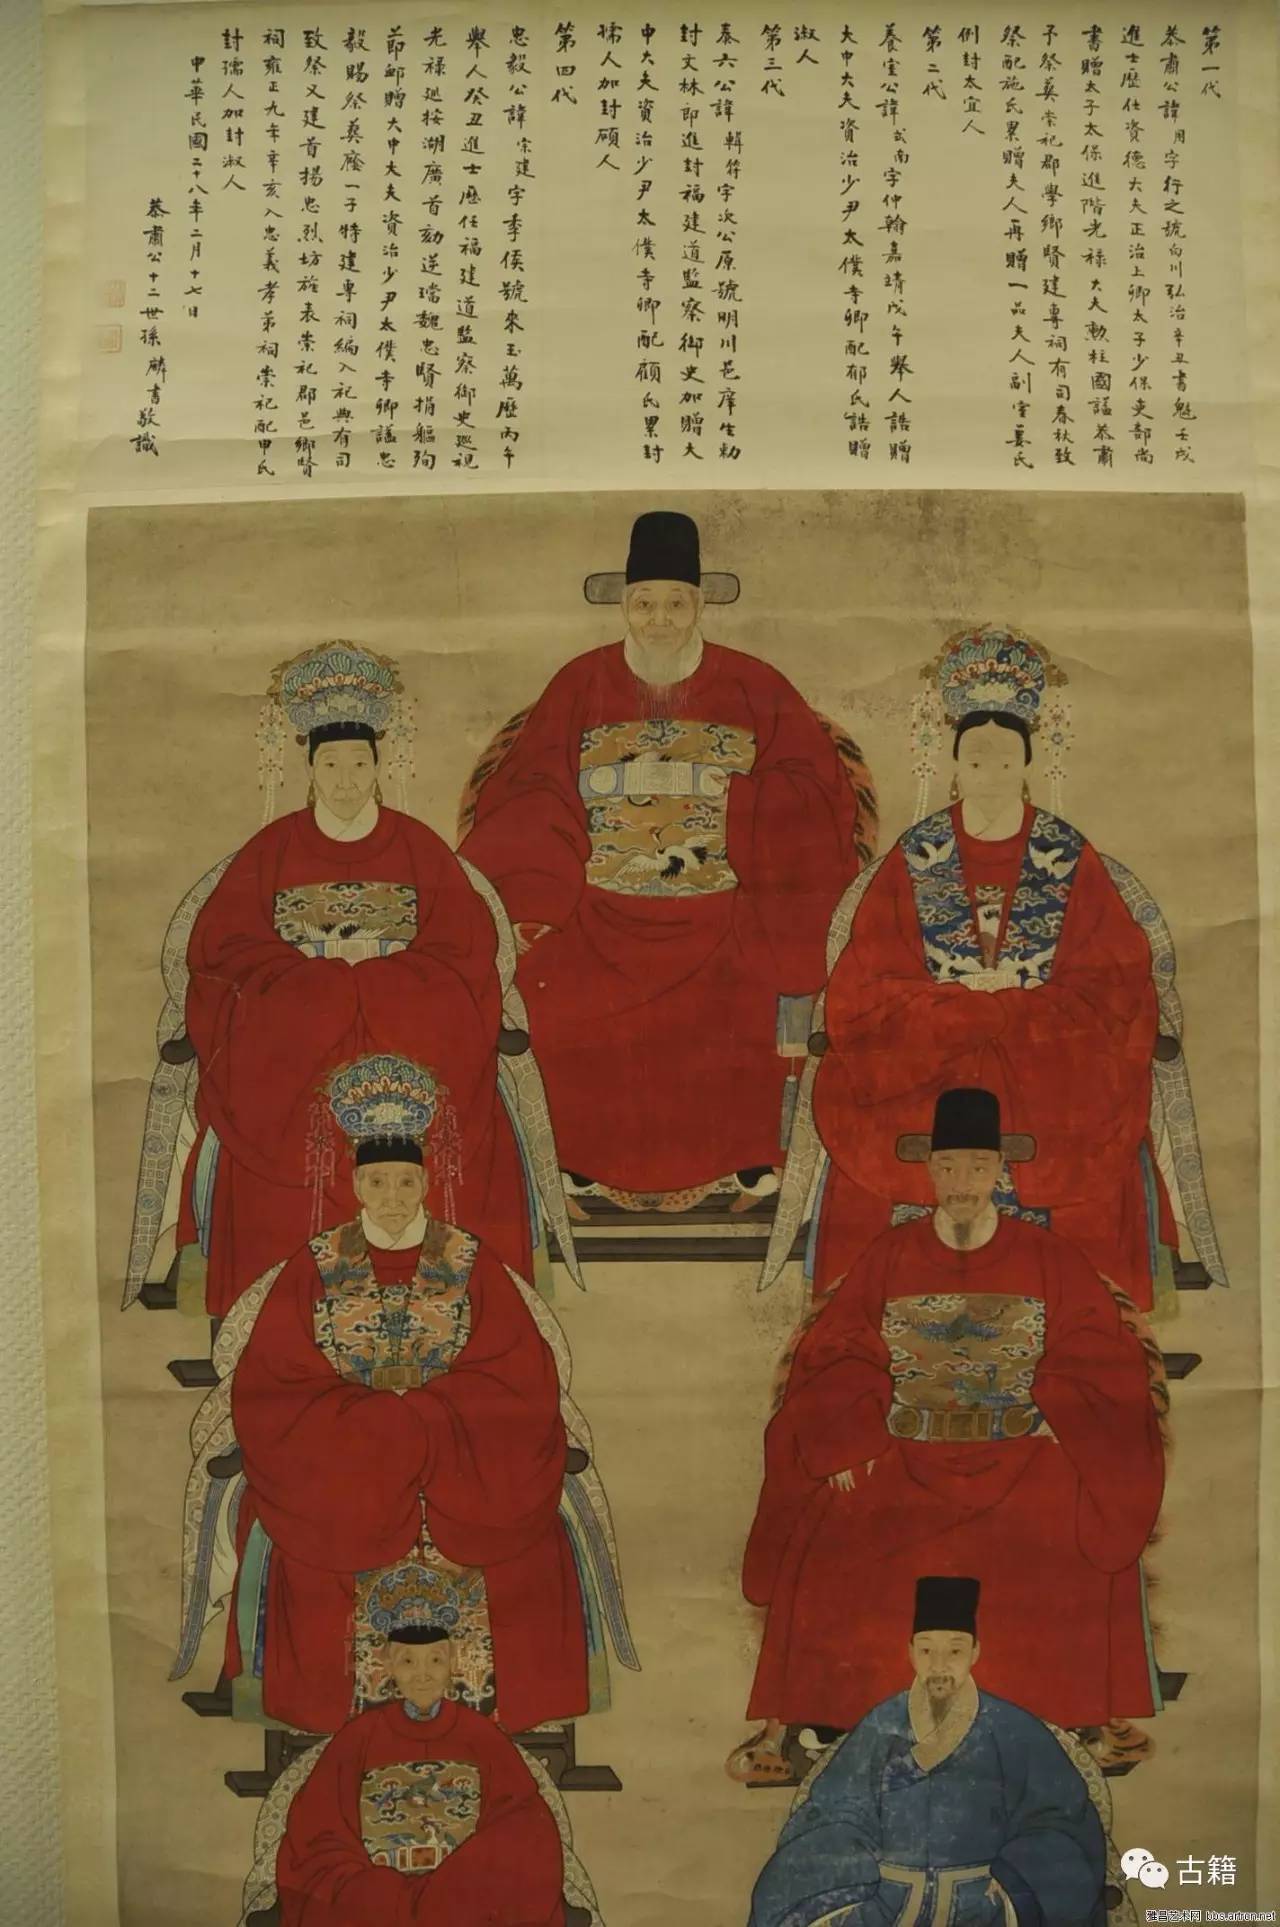 第一代
恭肅公諱用字行之號白川弘治辛丑書魁壬戌
進士歷仕資德大夫正治上卿太子少保吏部尚
書贈太子太保進階光祿大夫勳柱國謚恭肅
予祭葬崇祀郡學鄉賢建專祠有司春秋致
祭配施氏累贈夫人再贈一品夫人副室姜氏
例封太宜人
第二代
養室公諱式南字仲翰嘉靖戊午舉人誥贈
大中大夫資治少尹太僕寺卿配郁氏誥贈
淑人
第三代
泰六公諱輯符字次公原號明川邑庠生勅
封文林郎進封福建道監察御史加贈大
中大夫資治少尹太僕寺卿配顧氏累封
孺人加封碩人
第四代
忠毅公諱宗建字季侯號來玉萬歷丙午
舉人癸丑進士歷任福建道監察御史巡視
光祿巡按湖廣首劾逆璫魏忠賢捐軀殉
節卹贈大中大夫資治少尹太僕寺卿謚忠
毅賜祭葬廕一子特建專祠編入祀典有司
致祭又建首揚忠烈坊旌表崇祀郡邑鄉賢
祠雍正九年辛亥入忠義孝弟祠崇祀配申氏
封孺人加封淑人
中華民國二十八年二月十七日
恭肅公十二世孫麟書敬識
古籍
雅昌艺术网 bbs.artron.net